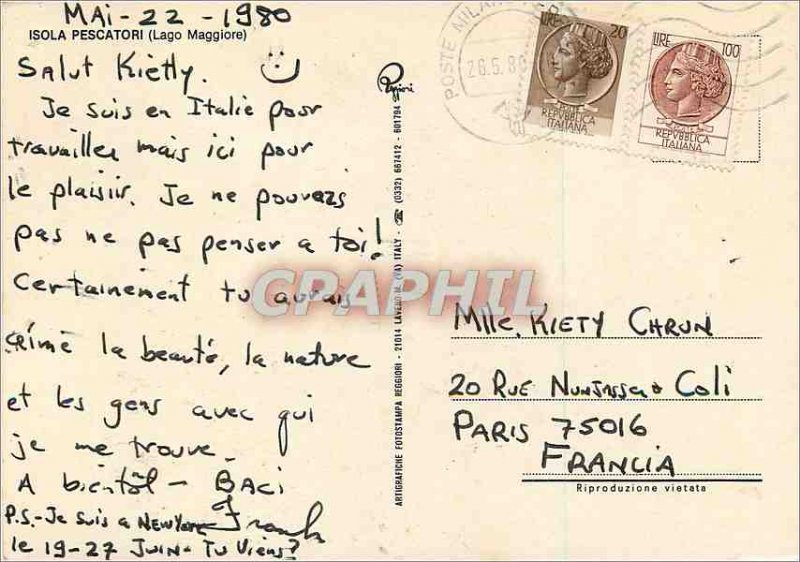 MAi - 22 - 1980
ISOLA PESCATORI (Lago Maggiore)
Salut Kietly.
Je suis en Italie pour
travailler mais ici pour
le plaisir. Je ne pouvais
pas ne pas penser a toi!
Certainement tu aurais
aimé la beauté, la nature
et les gens avec qui
je me trouve.
A bientôt - BACi
P.S. - Je Suis a NEW YORK Frank
le 19-27 JUIN - TU Viens?
Reggiori
ARTIGRAFICHE FOTOSTAMPA REGGIORI - 21014 LAVENO M. (VA) ITALY - (0332) 667412 - 601794
POSTE MILANO
26.5.80
LIRE 20
REPVBBLICA
ITALIANA
LIRE 100
REPVBBLICA
ITALIANA
CPAPHIL
Mlle. KIETY CHRUN
20 RUE Coli
PARIS 75016
FRANCIA
Riproduzione vietata